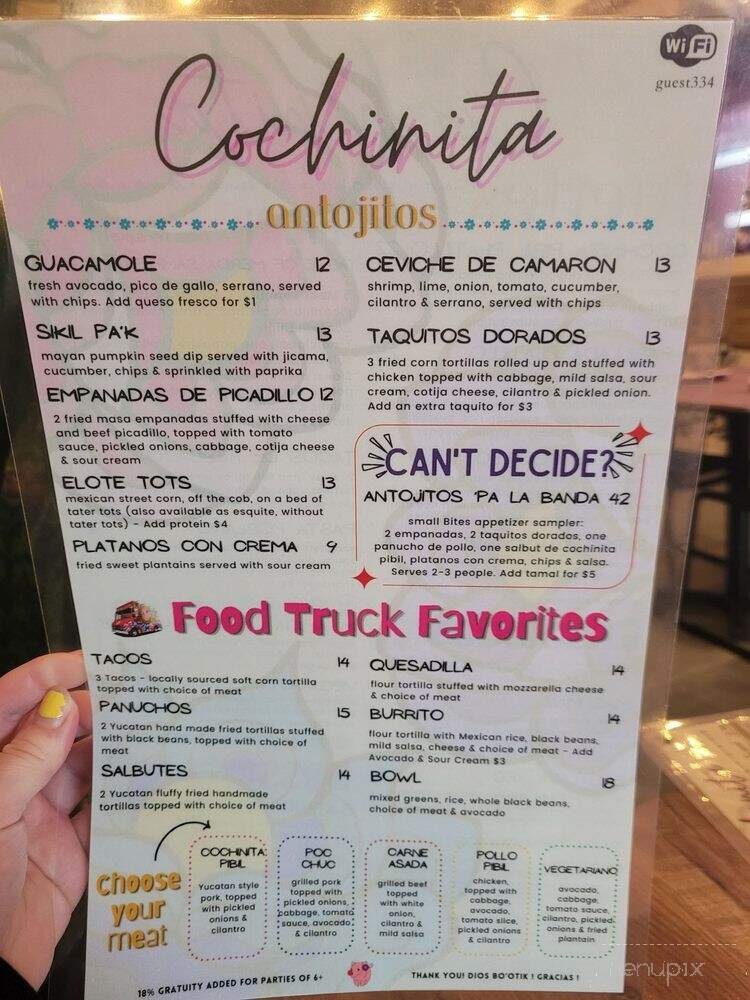 WiFi
guest334
Cochinita
antojitos
GUACAMOLE 12
fresh avocado, pico de gallo, serrano, served
with chips. Add queso fresco for $1
SIKIL PA'K 13
mayan pumpkin seed dip served with jicama,
cucumber, chips & sprinkled with paprika
EMPANADAS DE PICADILLO 12
2 fried masa empanadas stuffed with cheese
and beef picadillo, topped with tomato
sauce, pickled onions, cabbage, cotija cheese
& sour cream
ELOTE TOTS 13
mexican street corn, off the cob, on a bed of
tater tots (also available as esquite, without
tater tots) - Add protein $4
PLATANOS CON CREMA 9
fried sweet plantains served with sour cream
CEVICHE DE CAMARON 13
shrimp, lime, onion, tomato, cucumber,
cilantro & serrano, served with chips
TAQUITOS DORADOS 13
3 fried corn tortillas rolled up and stuffed with
chicken topped with cabbage, mild salsa, sour
cream, cotija cheese, cilantro & pickled onion.
Add an extra taquito for $3
CAN'T DECIDE?
ANTOJITOS 'PA LA BANDA 42
small Bites appetizer sampler:
2 empanadas, 2 taquitos dorados, one
panucho de pollo, one salbut de cochinita
pibil, platanos con crema, chips & salsa.
Serves 2-3 people. Add tamal for $5
Food Truck Favorites
TACOS 14
3 Tacos - locally sourced soft corn tortilla
topped with choice of meat
PANUCHOS 15
2 Yucatan hand made fried tortillas stuffed
with black beans, topped with choice of
meat
SALBUTES 14
2 Yucatan fluffy fried handmade
tortillas topped with choice of meat
QUESADILLA 14
flour tortilla stuffed with mozzarella cheese
& choice of meat
BURRITO 14
flour tortilla with Mexican rice, black beans,
mild salsa, cheese & choice of meat - Add
Avocado & Sour Cream $3
BOWL 18
mixed greens, rice, whole black beans,
choice of meat & avocado
Choose
your
meat
COCHINITA
PIBIL
Yucatan style
pork, topped
with pickled
onions &
cilantro
POC
CHUC
grilled pork
topped with
pickled onions,
cabbage, tomato
sauce, avocado
& cilantro
CARNE
ASADA
grilled beef
topped
with white
onion,
cilantro &
mild salsa
POLLO
PIBIL
chicken,
topped with
cabbage,
avocado,
tomato slice,
pickled onions
& cilantro
VEGETARIANO
avocado,
cabbage,
tomato sauce,
cilantro, pickled
onions & fried
plantain
18% GRATUITY ADDED FOR PARTIES OF 6+
THANK YOU! DIOS BO'OTIK ! GRACIAS !
menupix